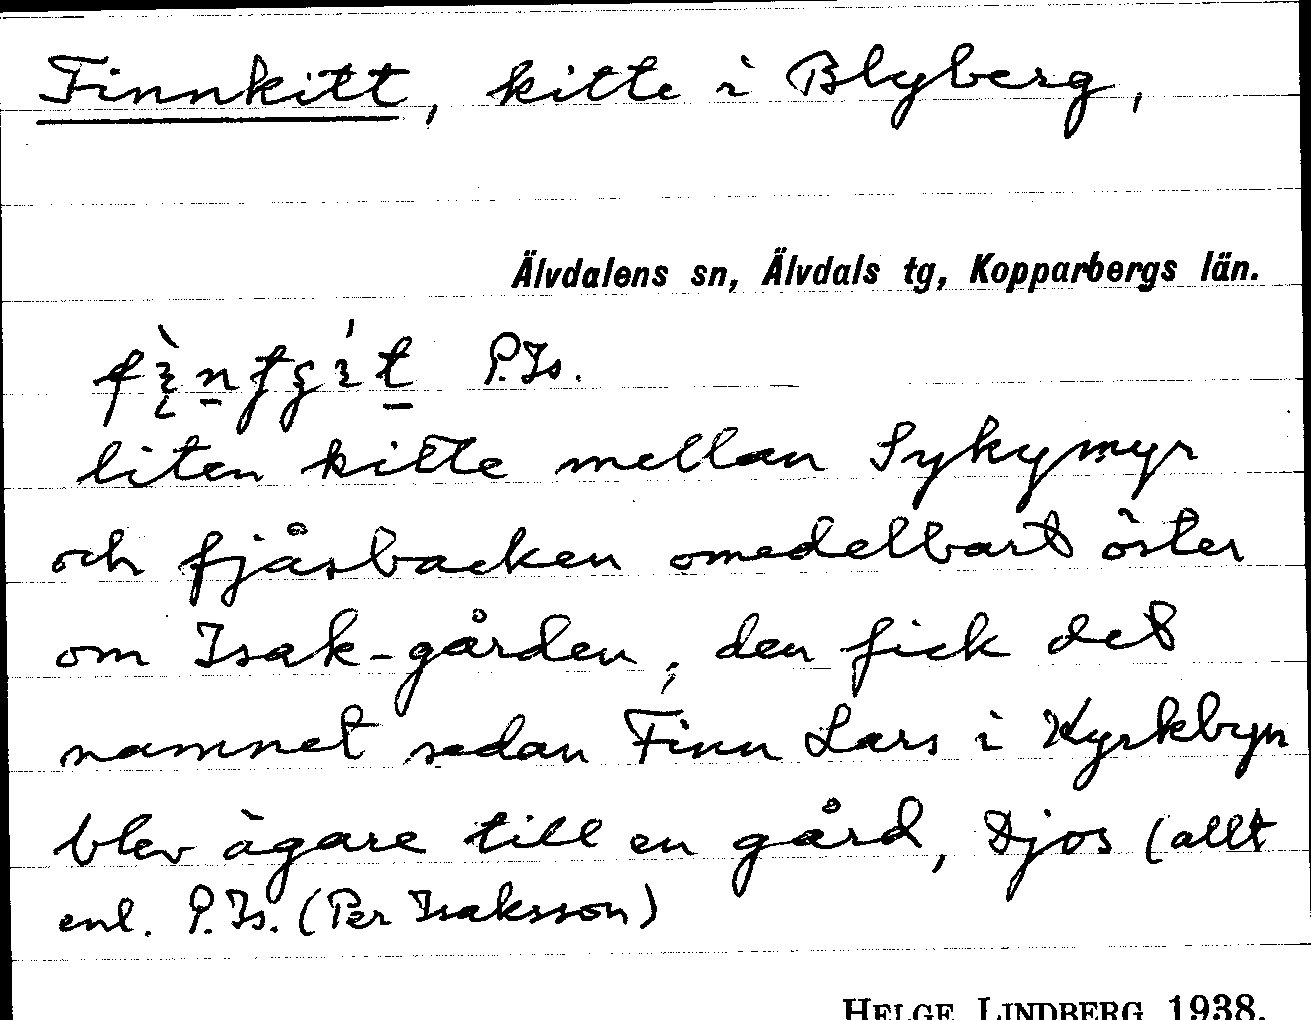 Finnkitt, kitte i Blyberg,
Älvdalens sn, Älvdals tg, Kopparbergs län.
P.Is.
liten kitte mellan Sykymyr
och fjåsbacken omedelbart öster
om Isak-gården; den fick det
namnet sedan Finn Lars i Kyrkbyn
blev ägare till en gård, Djos (allt
enl. P.Is. (Per Isaksson)
HELGE LINDBERG 1938.